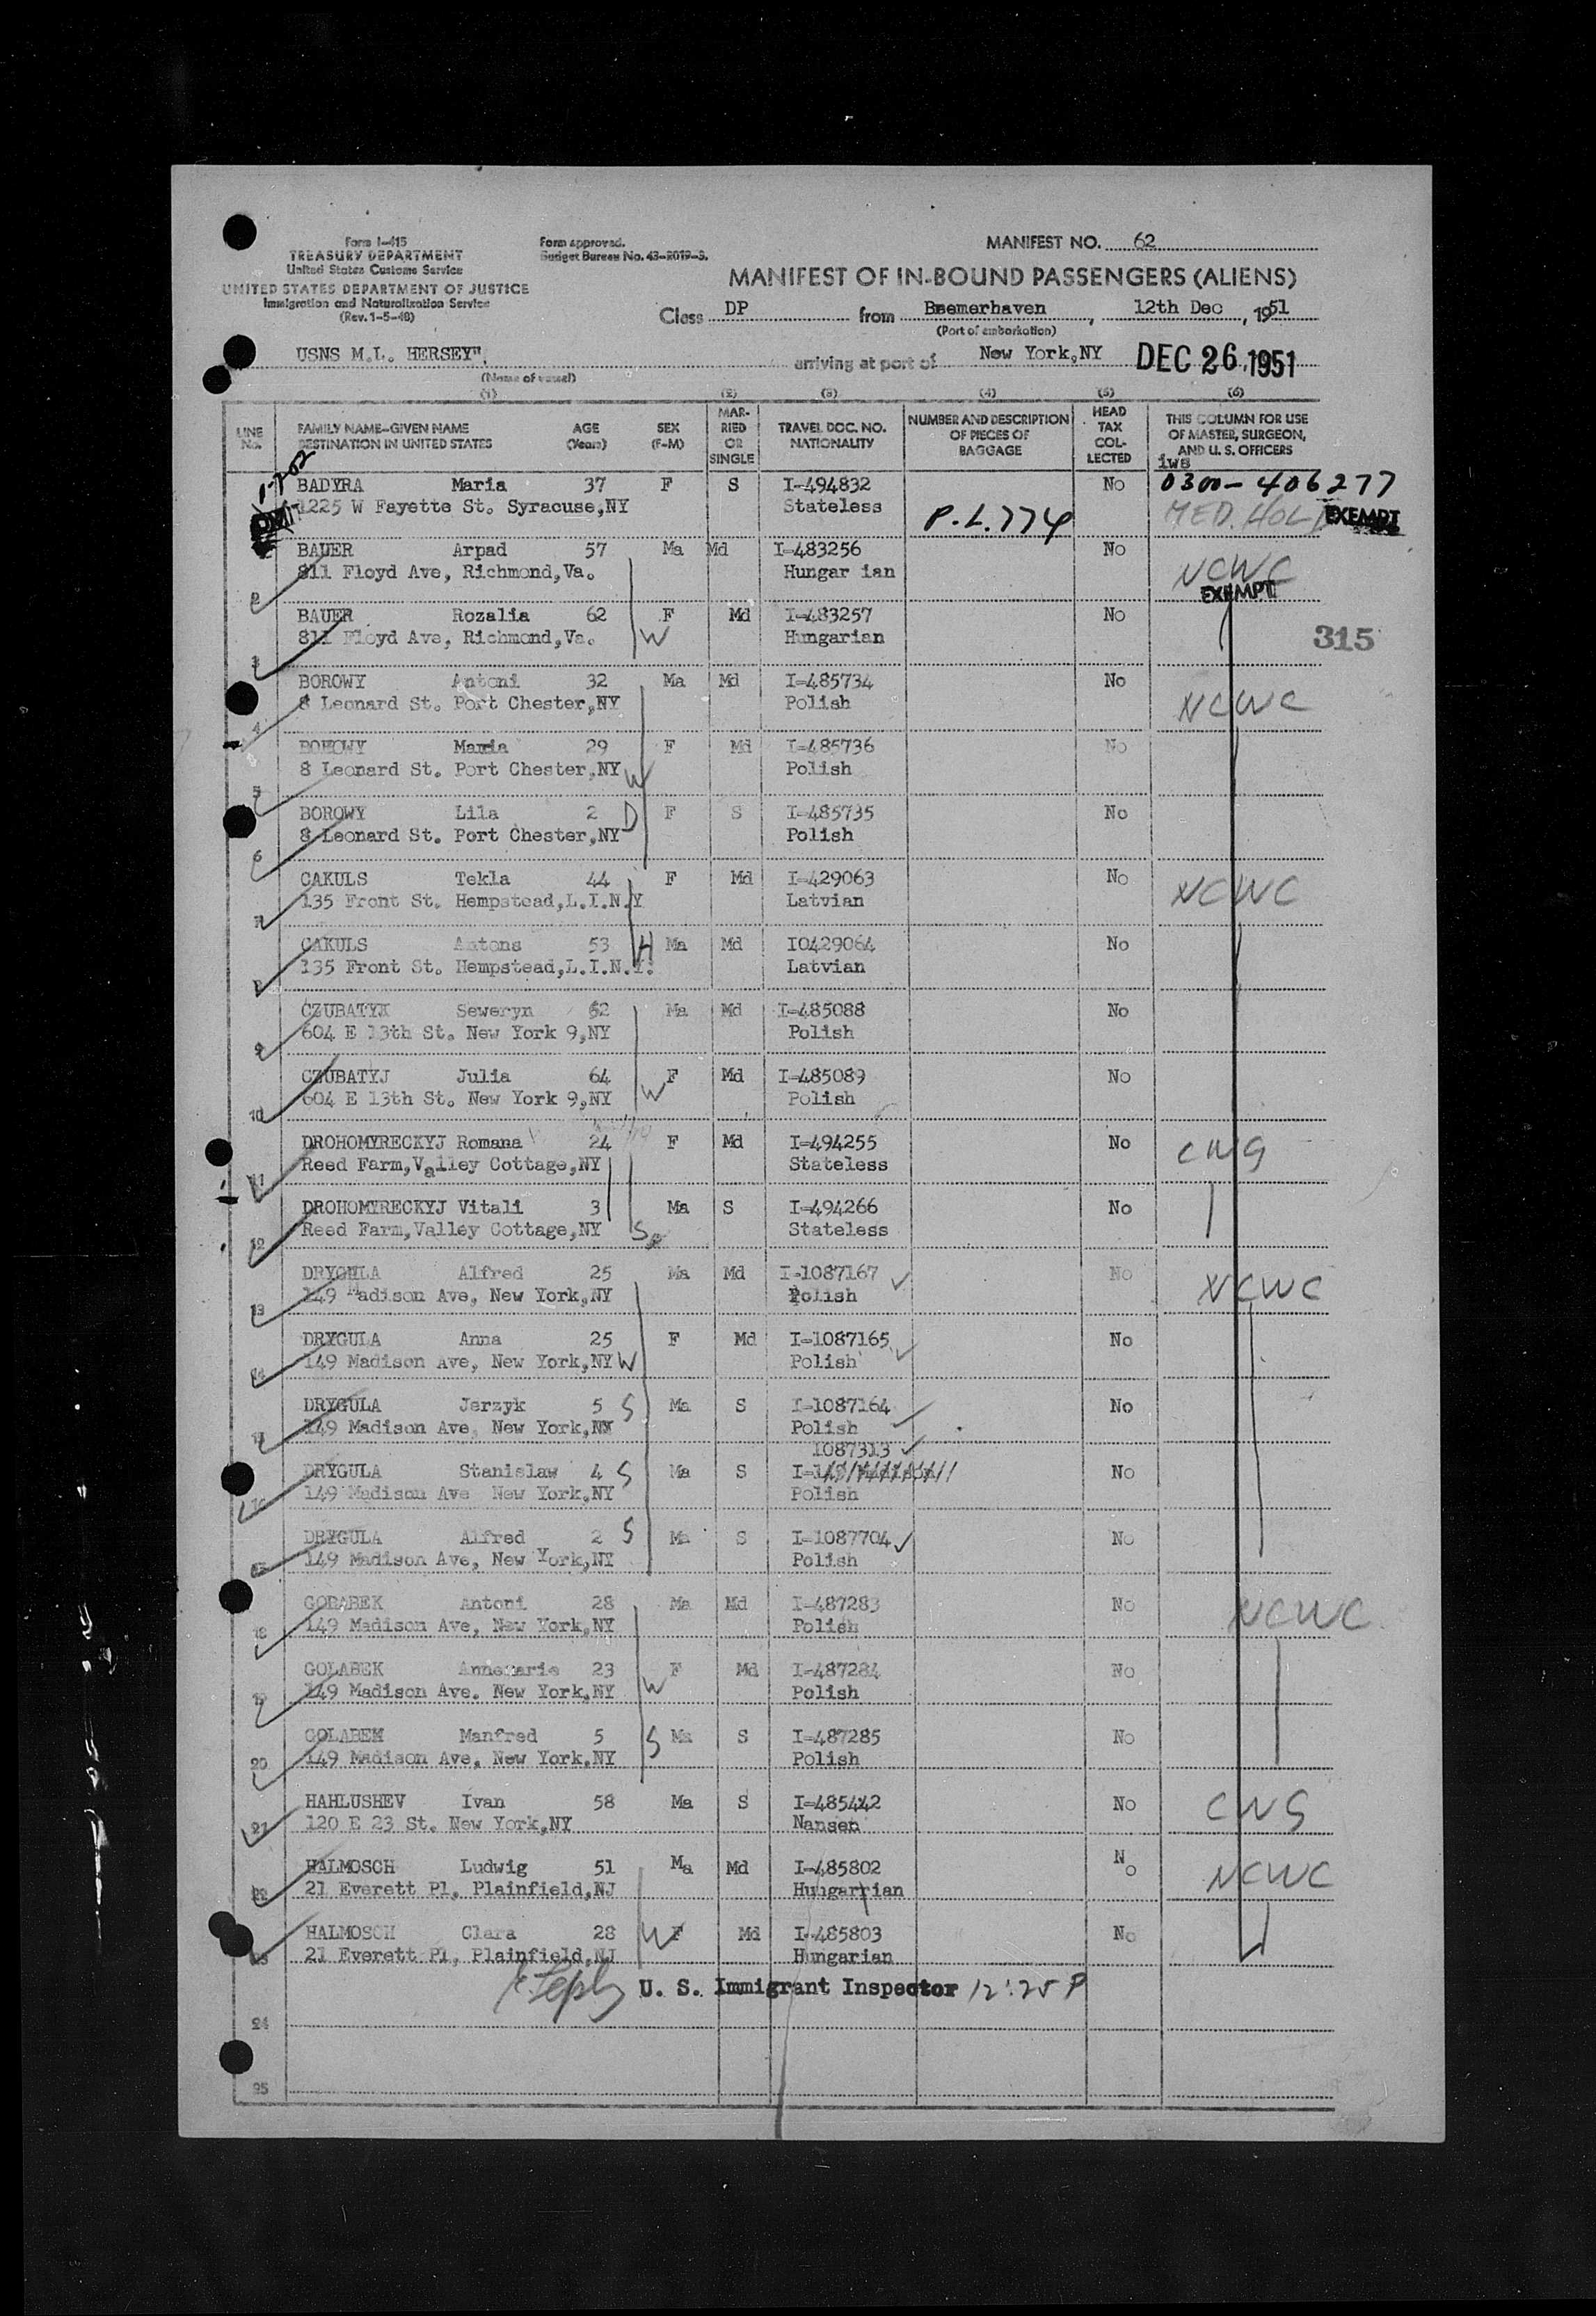 Form I-415
TREASURY DEPARTMENT
United States Customs Service
UNITED STATES DEPARTMENT OF JUSTICE
Immigration and Naturalization Service
(Rev. 1-5-48)
Form approved.
Budget Bureau No. 43-R019-3.
MANIFEST NO. 62
MANIFEST OF IN-BOUND PASSENGERS (ALIENS)
Class DP from Bremerhaven, 12th Dec, 1951
(Port of embarkation)
USNS M.L. HERSEY", arriving at port of New York,NY DEC 26 1951
(Name of vessel)
(1) (2) (3) (4) (5) (6)
LINE No. FAMILY NAME-GIVEN NAME DESTINATION IN UNITED STATES AGE (Years) SEX (F-M) MARRIED OR SINGLE TRAVEL DOC. NO. NATIONALITY NUMBER AND DESCRIPTION OF PIECES OF BAGGAGE HEAD TAX COLLECTED THIS COLUMN FOR USE OF MASTER, SURGEON, AND U. S. OFFICERS
iws
BADYRA Maria 37 F S I-494832 No 0300-406277
1225 W Fayette St. Syracuse,NY Stateless P.L.774 MED. HOLD EXEMPT
BAUER Arpad 57 Ma Md I-483256 No
811 Floyd Ave, Richmond,Va. Hungar ian NCWC
2 EXEMPT
BAUER Rozalia 62 F Md I-483257 No
811 Floyd Ave, Richmond,Va. W Hungarian 315
3
BOROWY Antoni 32 Ma Md I-485734 No
8 Leonard St. Port Chester,NY Polish NCWC
4
BOROWY Maria 29 F Md I-485736 No
8 Leonard St. Port Chester,NY W Polish
5
BOROWY Lila 2 D F S I-485735 No
8 Leonard St. Port Chester,NY Polish
6
CAKULS Tekla 44 F Md I-429063 No
135 Front St. Hempstead,L.I.N.Y Latvian NCWC
7
CAKULS Antons 53 H Ma Md IO429064 No
135 Front St. Hempstead,L.I.N.Y. Latvian
8
CZUBATYK Seweryn 62 Ma Md I-485088 No
604 E 13th St. New York 9,NY Polish
9
CZUBATYJ Julia 64 F Md I-485089 No
604 E 13th St. New York 9,NY W Polish
10
DROHOMYRECKYJ Romana 24 F Md I-494255 No
Reed Farm,Valley Cottage,NY Stateless CWS
11
DROHOMYRECKYJ Vitali 3 Ma S I-494266 No
Reed Farm,Valley Cottage,NY S Stateless
12
DRYGULA Alfred 25 Ma Md I-1087167 No
149 Madison Ave, New York,NY Polish NCWC
13
DRYGULA Anna 25 F Md I-1087165 No
149 Madison Ave, New York,NY W Polish
14
DRYGULA Jerzyk 5 S Ma S I-1087164 No
149 Madison Ave, New York,NY Polish
15
1087313
DRYGULA Stanislaw 4 S Ma S I-149 Madison No
149 Madison Ave New York,NY Polish
16
DRYGULA Alfred 2 S Ma S I-1087704 No
149 Madison Ave, New York,NY Polish
GOLABEK Antoni 28 Ma Md I-487283 No
149 Madison Ave, New York,NY Polish NCWC
18
GOLABEK Annemarie 23 F Md I-487284 No
149 Madison Ave. New York,NY W Polish
19
GOLABEK Manfred 5 S Ma S I-487285 No
149 Madison Ave, New York,NY Polish
20
HAHLUSHEV Ivan 58 Ma S I-485442 No
120 E 23 St. New York,NY Nansen CWS
21
HALMOSCH Ludwig 51 Ma Md I-485802 No
21 Everett Pl, Plainfield,NJ Hungarrian NCWC
22
HALMOSCH Clara 28 W F Md I-485803 No
21 Everett Pl, Plainfield,NJ Hungarian
23
U. S. Immigrant Inspector 12:25 P
24
25